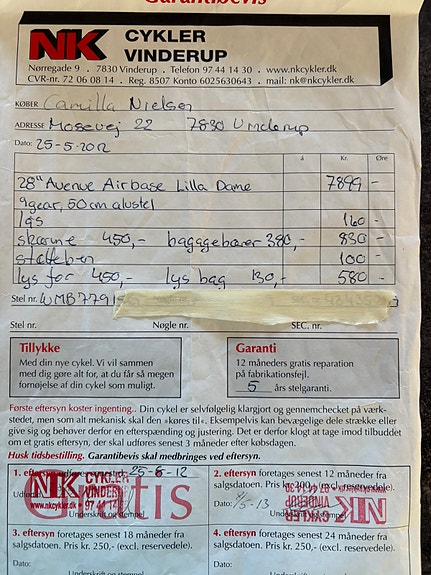 Garantibevis
NK CYKLER VINDERUP
Nørregade 9 . 7830 Vinderup . Telefon 97 44 14 30 . www.nkcykler.dk
CVR-nr. 72 06 08 14 . Reg. 8507 Konto 6025630643 . mail: nk@nkcykler.dk
KØBER Camilla Nielsen
ADRESSE Mosevej 22 7830 Vinderup
Dato: 25-5-2012
á Kr. Øre
28" Avenue Airbase Lilla Dame 7899 -
9gear, 50cm alustel
lås 160 -
skærme 450,- baggagebærer 380,- 830 -
støtteben 100 -
lys for 450,- lys bag 130,- 580 -
Stel nr. WMB779
Stel nr. Nøgle nr. SEC. nr.
Tillykke
Med din nye cykel. Vi vil sammen
med dig gøre alt for, at du får så megen
fornøjelse af din cykel som muligt.
Garanti
12 måneders gratis reparation
på fabrikationsfejl.
5 års stelgaranti.
Første eftersyn koster ingenting.. Din cykel er selvfølgelig klargjort og gennemchecket på værk-
stedet, men som alt mekanisk skal den »køres til«. Eksempelvis kan bevægelige dele strække eller
give sig og behøver derfor en efterspænding og justering. Det er derfor klogt at tage imod tilbuddet
om et gratis eftersyn, der skal udføres senest 3 måneder efter købsdagen.
Husk tidsbestilling. Garantibevis skal medbringes ved eftersyn.
1. 25-6-12
NK CYKLER VINDERUP
www.nkcykler.dk
Gratis
Underskrift og stempel
2. eftersyn foretages senest 12 måneder af
salgsdatoen. Pris kr. 200,- (excl. reservedele).
Dato: -13
NK CYKLER VINDERUP
97 44 14 30
3. eftersyn foretages senest 18 måneder af
salgsdatoen. Pris kr. 250,- (excl. reservedele).
Dato:
Underskrift og stempel
4. eftersyn foretages senest 24 måneder af
salgsdatoen. Pris kr. 250,- (excl. reservedele).
Dato:
Underskrift og stempel